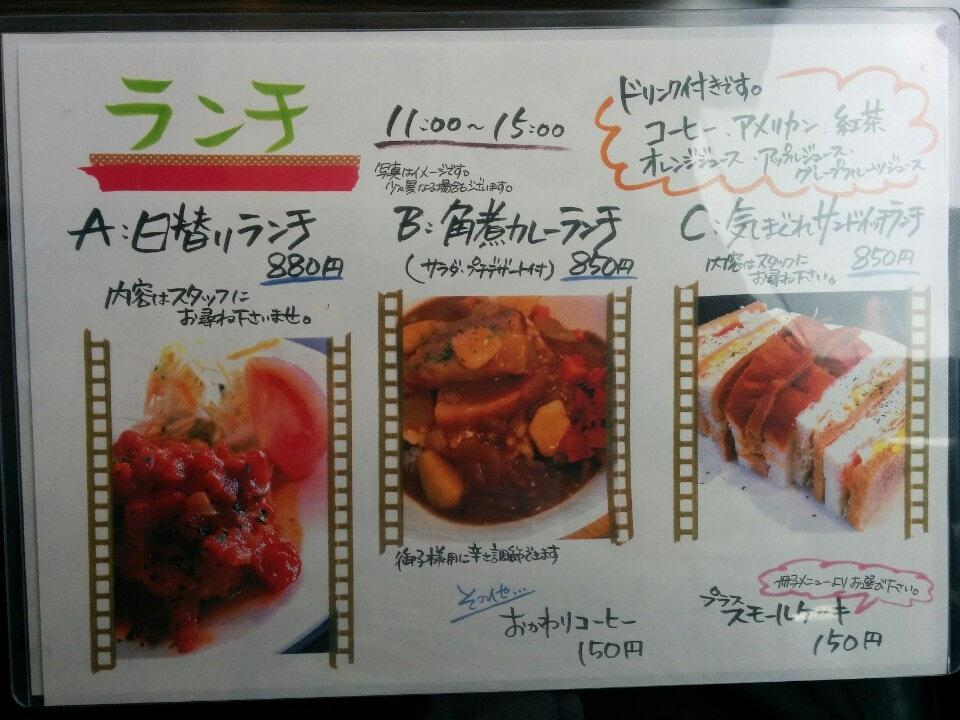 ランチ
11:00~15:00
写真はイメージです。
少々異なる場合もございます。
ドリンク付きです。
コーヒー、アメリカン、紅茶
オレンジジュース、アップルジュース、
グレープフルーツジュース
A:日替りランチ
880円
内容はスタッフに
お尋ね下さいませ。
B:角煮カレーランチ
(サラダ・プチデザート付) 850円
御子様用に辛さ調節できます
C:気まぐれサンドイッチランチ
内容はスタッフに 850円
お尋ね下さい。
その他…
おかわりコーヒー
150円
冊子メニューよりお選び下さい。
プラス
スモールケーキ
150円